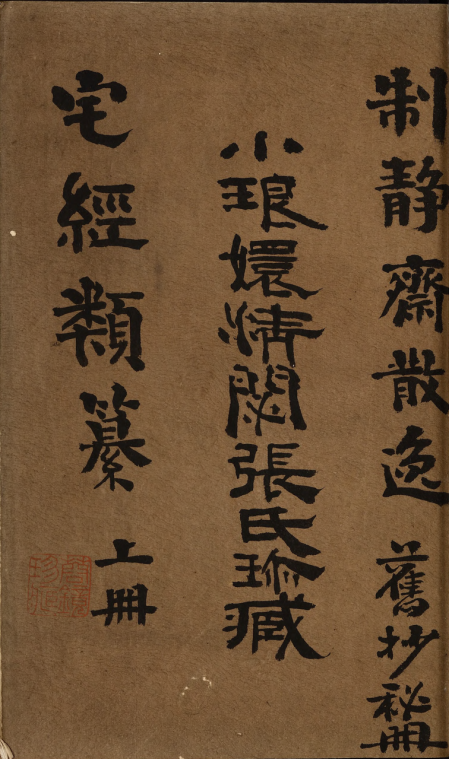 制靜齋散逸 舊抄秘冊
小琅嬛清閟張氏珍藏
宅經類纂 上冊